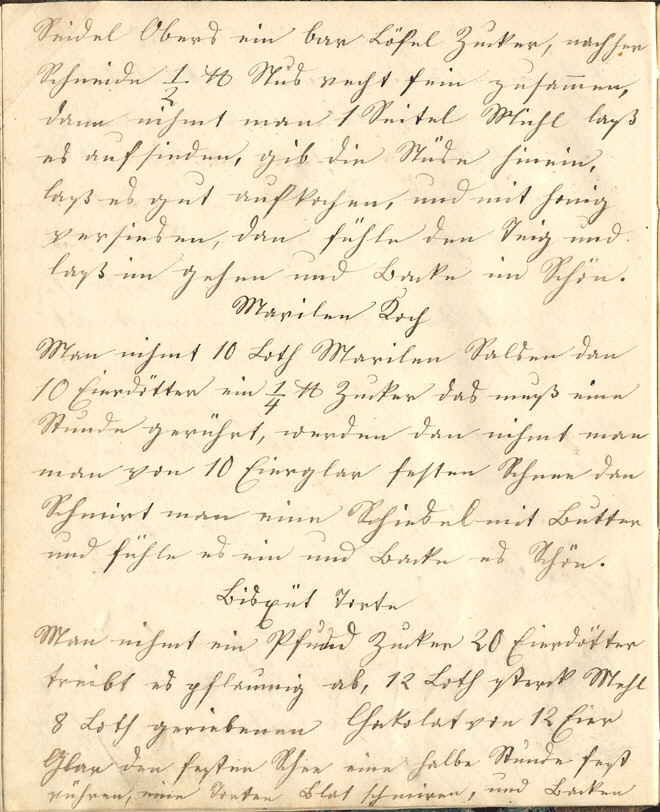 Seidel Obers ein bar Löfel Zucker, nachher
Schneide 1/2 ℔ Nus recht fein zusam̅en,
dann nihmt man 1 Seitel Milch laß
es aufsieden, gib die Nüse hinein,
laß es gut aufkochen, und mit honig
versieden, dan fühle den Teig und
laß im gehen und Backe im Schön.
Marilen Koch
Man nihmt 10 Loth Marilen Salsen dan
10 Eierdötter ein 1/4 ℔ Zucker das muß eine
Stunde gerührt, werden dan nihmt man
man von 10 Eierglar festen Schnee dan
Schmirt man eine Schiesel mit Butter
und fühle es ein und Backe es Schön.
Bisquit Torte
Man nihmt ein Pfund Zucker 20 Eierdötter
treibt es pflaumig ab, 12 Loth Mehl
8 Loth geriebenen Chokolat von 12 Eier
Glar den festen Schne eine halbe Stunde fest
rühren, eine Torten Blat schmiren, und Backen